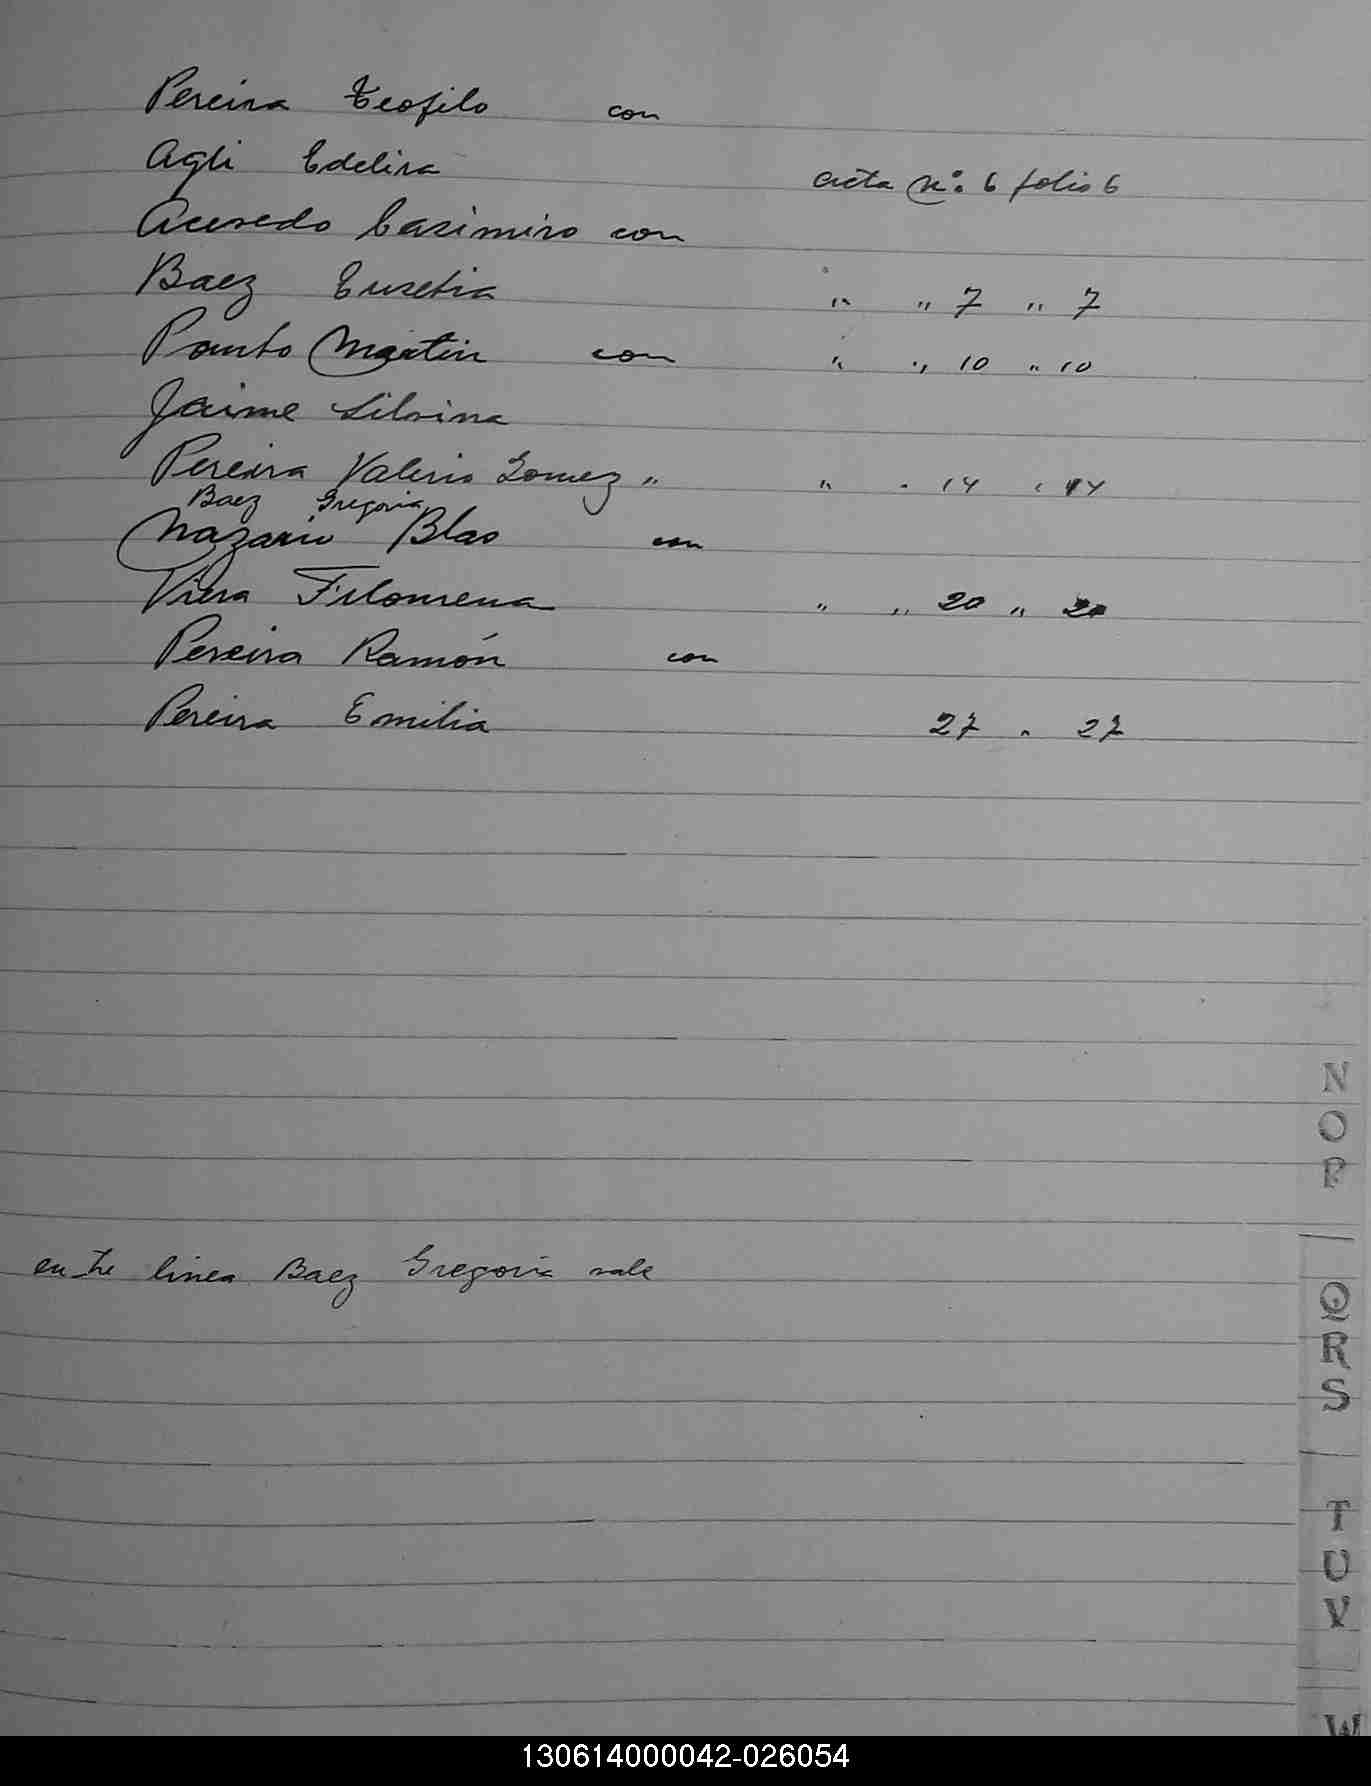 Pereira Teofilo con
Agli Edelira acta n°. 6 folio 6
Acevedo Casimiro con
Baez Eusebia " " 7 " 7
Martin con " " 10 " 10
Jaime Silvina
Pereira Valerio Gomez " " " 14 " 14
Baez Gregoria
Nazario Blas con
Viera Filomena " " 20 " 20
Pereira Ramón con
Pereira Emilia 27 " 27
N
O
P
entre linea Baez Gregoria vale
Q
R
S
T
U
V
W
130614000042-026054